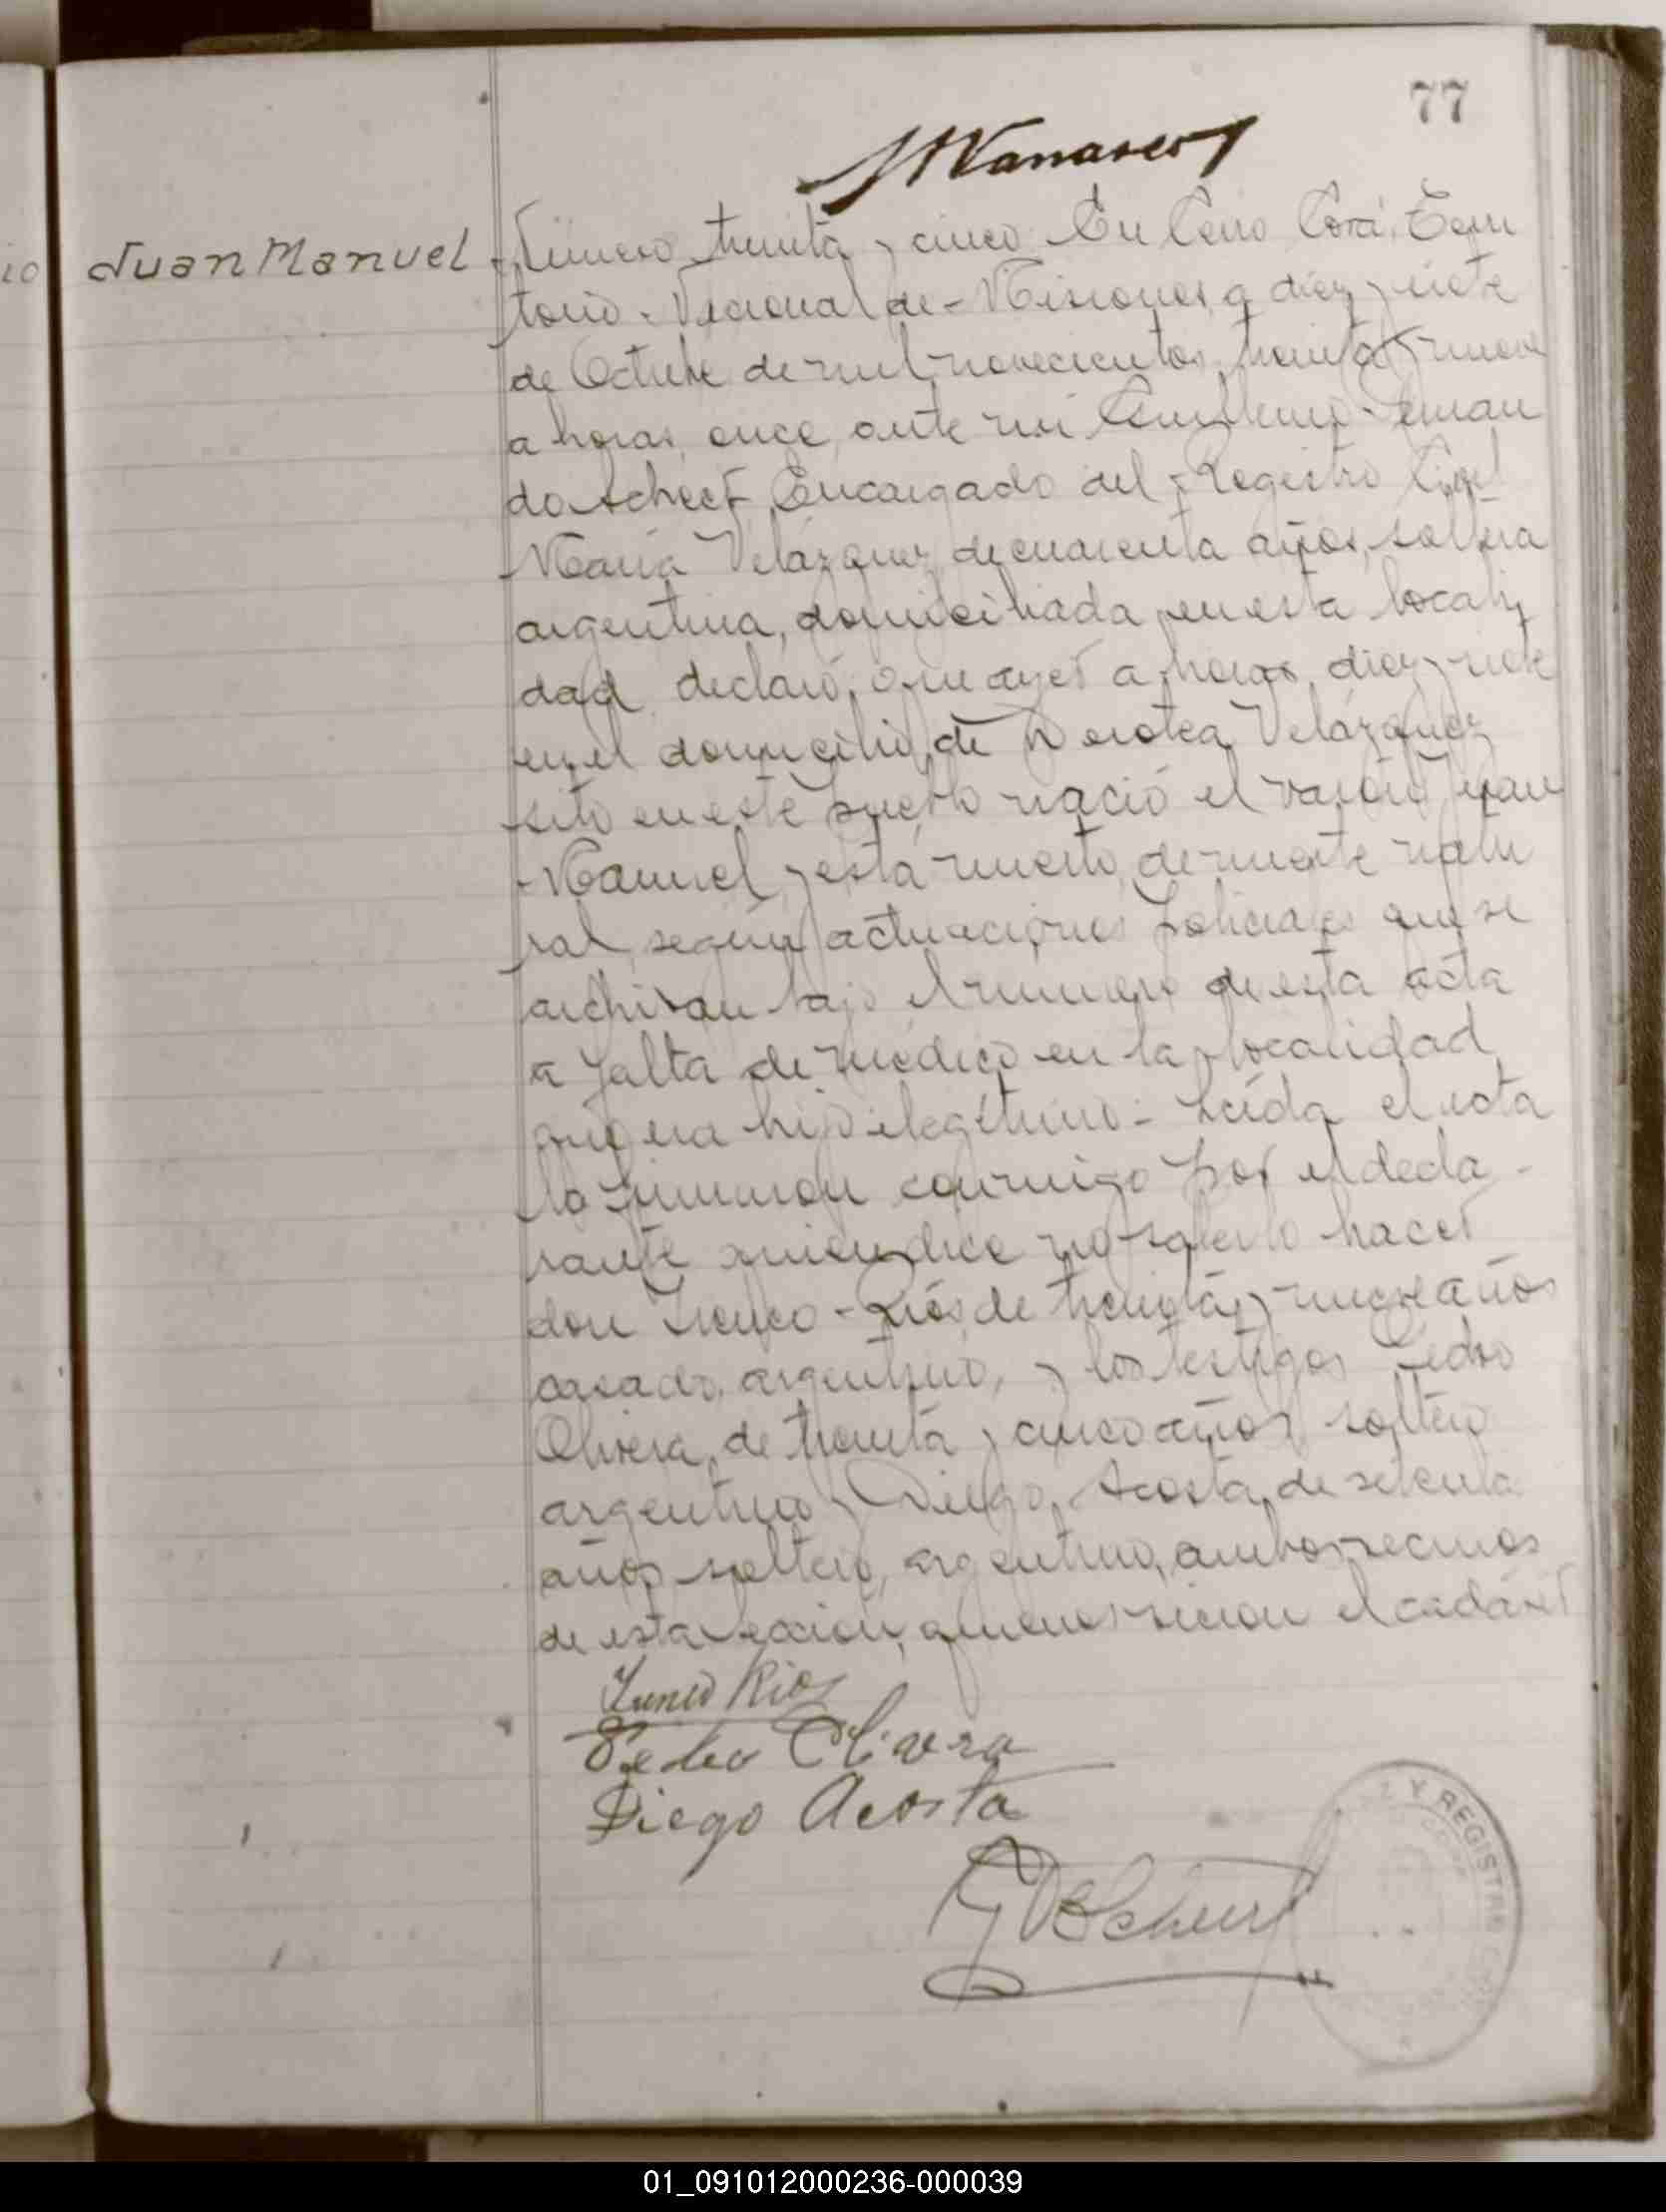 77
Juan Manuel
Número treinta y cinco En Cerro Corá, Terri
torio Nacional de Misiones, a diez y siete
de Octubre de mil novecientos treinta y nueve
a horas once, ante mí Guillermo
Encargado del Registro Civil
María Velázquez de cuarenta años, soltera
argentina, domiciliada en esta locali
dad declaró, que ayer a horas diez y siete
en el domicilio de Dorotea Velázquez
sito en este pueblo nació el varón Juan
Manuel y está muerto, de muerte natu
ral según actuaciones policiales que se
archivan bajo el número de esta acta
a falta de médico en la localidad
que era hijo ilegítimo - Leída el acta
la firmaron conmigo por el decla-
rante quien dice no saberlo hacer
don Ríos de treinta y nueve años
casado, argentino, y los testigos Pedro
Olivera, de treinta y cinco años soltero
argentino y Diego Acosta, de setenta
años soltero, argentino, ambos vecinos
de esta sección, quienes vieron el cadáver
Rios
Pedro Olivera
Diego Acosta
Y REGISTRO
01_091012000236-000039